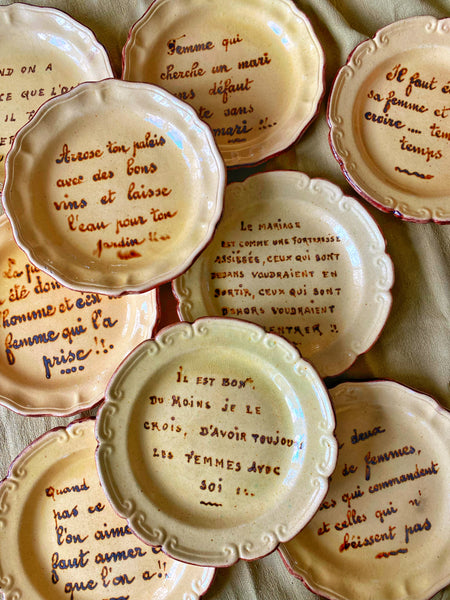 ND ON A
CE QUE L'O
IL
Femme qui
cherche un mari
sans défaut
reste sans
mari !!..
Il faut
sa femme et
croire .... tem
temps
Arrose ton palais
avec des bons
vins et laisse
l'eau pour ton
jardin !!..
LE MARIAGE
EST COMME UNE FORTERESSE
ASSIÉGÉE, CEUX QUI SONT
DEDANS VOUDRAIENT EN
SORTIR, CEUX QUI SONT
DEHORS VOUDRAIENT
ENTRER !!
La
été don
l'homme et c'es
femme qui l'a
prise !!..
IL EST BON
DU MOINS JE LE
CROIS, D'AVOIR TOUJOU
LES FEMMES AVEC
SOI !..
Quand
pas ce
l'on aime
faut aimer
que l'on a !!
deux
de femmes,
es qui commandent
et celles qui n'
béissent pas